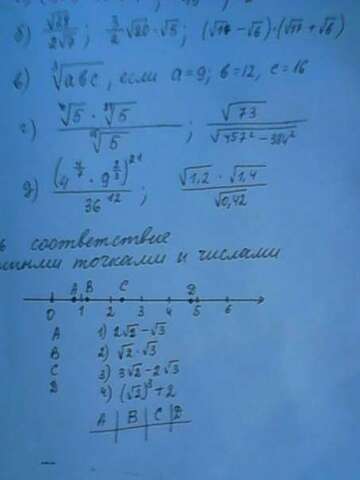 б) √28 / 2√7 ; 3/2 √20 · √5 ; (√17 - √6)·(√17 + √6)
в) ∛abc, если a=9; b=12, c=16
√5 · √5 / √5 ; √73 / √(457² - 384²)
д) (4^(4/7) · 9^(2/3))^21 / 36^12 ; √1,2 · √1,4 / √0,42
соответствие
точками и числами
A B C D
0 1 2 3 4 5 6
A 1) 2√2 - √3
B 2) √2 · √3
C 3) 3√2 - 2√3
D 4) (√2)³ + 2
A | B | C | D